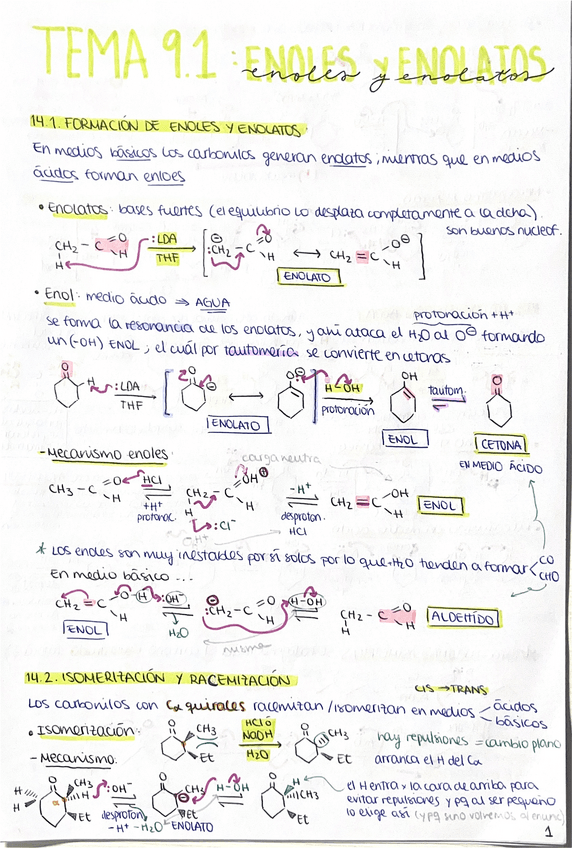 TEMA 9.1 : ENOLES Y ENOLATOS
enoles y enolatos
14.1. FORMACIÓN DE ENOLES Y ENOLATOS
En medios básicos los carbonilos generan enolatos ; mientras que en medios
ácidos forman enloes
• Enolatos: bases fuertes (el equilibrio lo desplaza completamente a la dcha).
son buenos nucleof.
CH2 - C O H H :LDA THF ⊖ :CH2 - C O H ↔ CH2 = C O⊖ H
ENOLATO
• Enol: medio ácido ⇒ AGUA
protonación + H+
se forma la resonancia de los enolatos, y ahí ataca el H2O al O⊖ formando
un (-OH) ENOL ; el cuál por tautomería se convierte en cetonas
O H :LDA THF O ⊖ ↔ O⊖ H-OH protonación OH tautom. O
ENOLATO ENOL CETONA
EN MEDIO ÁCIDO
- Mecanismo enoles:
carga neutra
CH3 - C O H HCl +H+ protonac. CH2 - C OH⊕ H H :Cl- -H+ desproton. HCl CH2 = C OH H ENOL
* Los enoles son muy inestables por sí solos por lo que + H2O tienden a formar CO CHO
En medio básico ...
CH2 = C O-H H :OH- H2O ⊖ :CH2 - C O H H-OH CH2 - C O H H ALDEHÍDO
ENOL
misma
14.2. ISOMERIZACIÓN Y RACEMIZACIÓN
CIS → TRANS
Los carbonilos con Cα quirales racemizan / isomerizan en medios ácidos básicos
• Isomerización: O CH3 Et HCl ó NaOH H2O O CH3 Et hay repulsiones = cambio plano
- Mecanismo. arranca el H del Cα
H H O α CH3 H Et :OH- desproton -H+ -H2O O CH3 ⊖ Et ENOLATO H-OH O H CH3 Et
el H entra x la cara de arriba para
evitar repulsiones y pq al ser pequeño
lo elige así (y pq sino volvemos al enunc)
1